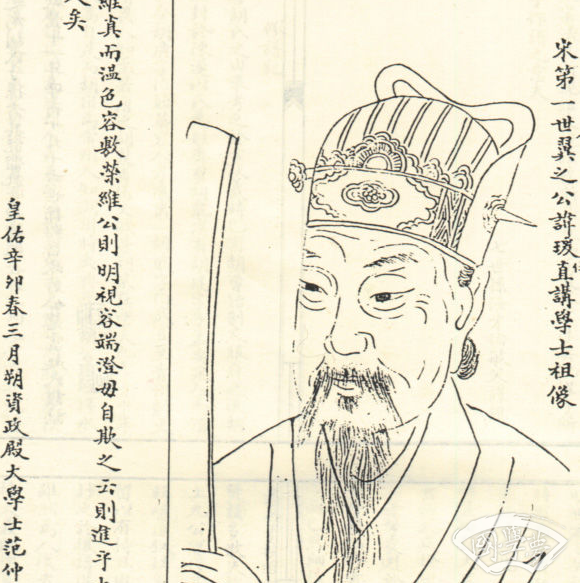 宋第一世翼之公諱瑗直講學士祖像
維真而溫色容敷榮維公則明視容端澄毋自欺之云則進乎
矣
皇佑辛卯春三月朔資政殿大學士范仲